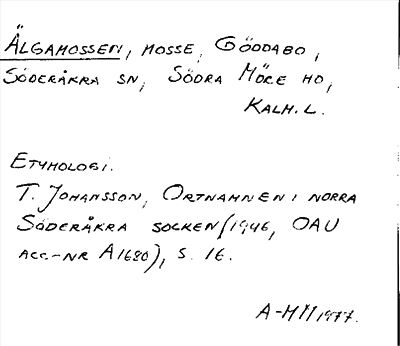 ÄLGAMOSSEN, MOSSE, GÖDDABO,
SÖDERÅKRA SN, SÖDRA MÖRE HD,
KALM. L.
ETYMOLOGI.
T. JOHANSSON, ORTNAMNEN I NORRA
SÖDERÅKRA SOCKEN (1946, OAU
ACC.-NR A1680), S. 16.
A-M 1977.